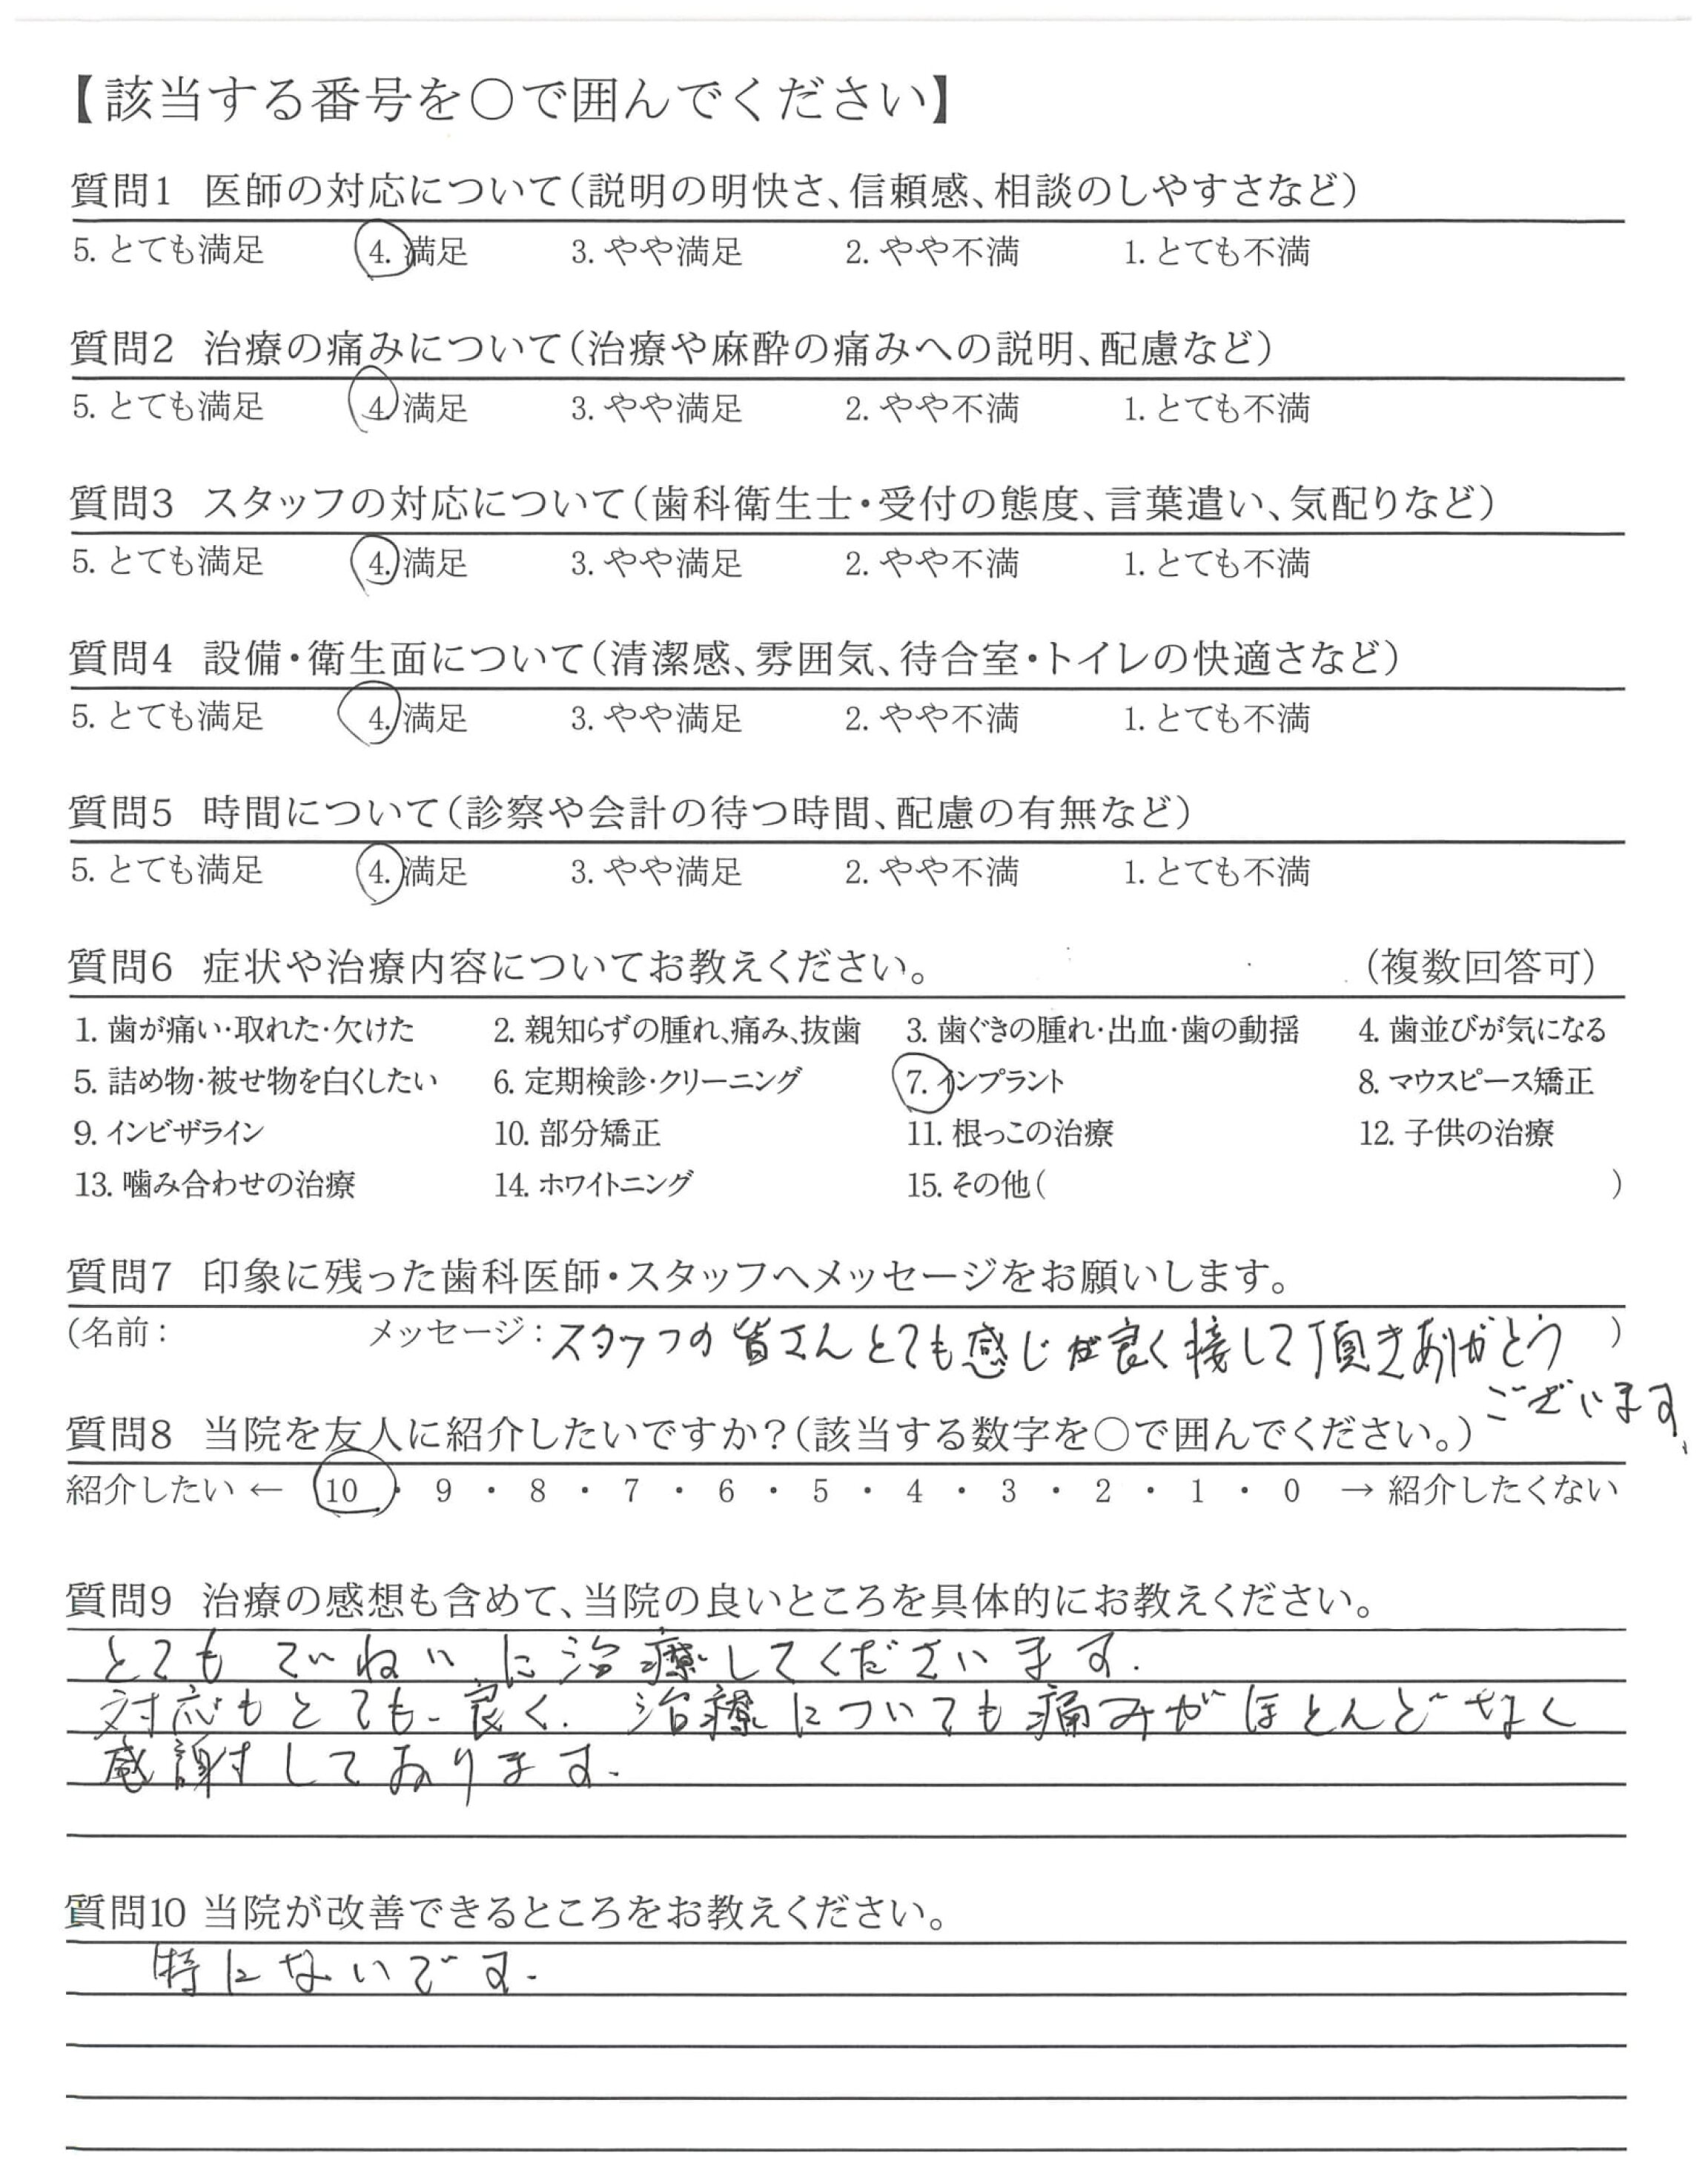 【該当する番号を○で囲んでください】
質問1 医師の対応について(説明の明快さ、信頼感、相談のしやすさなど)
5. とても満足 4. 満足 3. やや満足 2. やや不満 1. とても不満
質問2 治療の痛みについて(治療や麻酔の痛みへの説明、配慮など)
5. とても満足 4. 満足 3. やや満足 2. やや不満 1. とても不満
質問3 スタッフの対応について(歯科衛生士・受付の態度、言葉遣い、気配りなど)
5. とても満足 4. 満足 3. やや満足 2. やや不満 1. とても不満
質問4 設備・衛生面について(清潔感、雰囲気、待合室・トイレの快適さなど)
5. とても満足 4. 満足 3. やや満足 2. やや不満 1. とても不満
質問5 時間について(診察や会計の待つ時間、配慮の有無など)
5. とても満足 4. 満足 3. やや満足 2. やや不満 1. とても不満
質問6 症状や治療内容についてお教えください。 (複数回答可)
1. 歯が痛い・取れた・欠けた 2. 親知らずの腫れ、痛み、抜歯 3. 歯ぐきの腫れ・出血・歯の動揺 4. 歯並びが気になる
5. 詰め物・被せ物を白くしたい 6. 定期検診・クリーニング 7. インプラント 8. マウスピース矯正
9. インビザライン 10. 部分矯正 11. 根っこの治療 12. 子供の治療
13. 噛み合わせの治療 14. ホワイトニング 15. その他( )
質問7 印象に残った歯科医師・スタッフへメッセージをお願いします。
(名前: メッセージ:スタッフの皆さんとても感じが良く接して頂きありがとう )
ございます。
質問8 当院を友人に紹介したいですか?(該当する数字を○で囲んでください。)
紹介したい ← 10 ・ 9 ・ 8 ・ 7 ・ 6 ・ 5 ・ 4 ・ 3 ・ 2 ・ 1 ・ 0 → 紹介したくない
質問9 治療の感想も含めて、当院の良いところを具体的にお教えください。
とてもていねいに治療してくださいます.
対応もとても良く. 治療についても痛みがほとんどなく
感謝しております.
質問10 当院が改善できるところをお教えください。
特にないです.